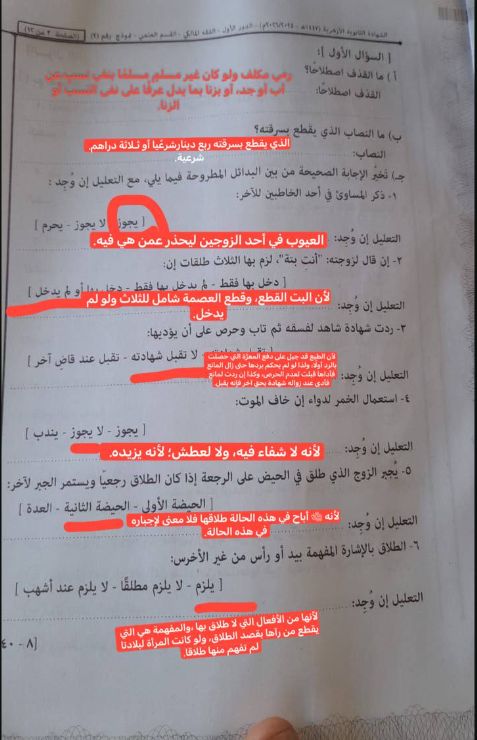 الشهادة الثانوية الأزهرية (١٤٤٧هـ - ٢٠٢٥/٢٠٢٦م) - الدور الأول - الفقه المالكي - القسم العلمي - نموذج رقم (٢)
[الصفحة ٢ من ١٢]
[ السؤال الأول ]:
أ ) ما القذف اصطلاحًا؟
القذف اصطلاحًا:
رمي مكلف ولو كان غير مسلم مسلمًا بنفي نسب عن
أب أو جد، أو بزنا بما يدل عرفًا على نفي النسب أو
الزنا.
ب) ما النصاب الذي يقطع بسرقته؟
النصاب:
الذي يقطع بسرقته ربع دينارشرعيا أو ثلاثة دراهم.
شرعية.
جـ) تخير الإجابة الصحيحة من بين البدائل المطروحة فيما يلي، مع التعليل إن وُجِد :
١- ذكر المساوئ في أحد الخاطبين للآخر:
[ يجوز - لا يجوز - يحرم ]
التعليل إن وُجِد:
العيوب في أحد الزوجين ليحذر عمن هي فيه.
٢- إن قال لزوجته: "أنتِ بتة"، لزم بها الثلاث طلقات إن:
[ دخل بها فقط - لم يدخل بها فقط - دخل بها أو لم يدخل ]
التعليل إن وُجِد:
لأن البت القطع، وقطع العصمة شامل للثلاث ولو لم
يدخل.
٣- ردت شهادة شاهد لفسقه ثم تاب وحرص على أن يؤديها:
لا تقبل شهادته - تقبل عند قاضٍ آخر ]
التعليل إن وُجِد:
لأن الطبع قد جبل على دفع المعرّة التي حصلت
بالرد أولا. ولذا لو لم يحكم بردها حتى زال المانع
فأداها قبلت لعدم الحرص، وكذا إن ردت لمانع
فأدى عند زواله شهادة بحق آخر فإنه يقبل
٤- استعمال الخمر لدواء إن خاف الموت:
[ يجوز - لا يجوز - يندب ]
التعليل إن وُجِد:
لأنه لا شفاء فيه، ولا لعطش؛ لأنه يزيده.
٥- يُجبر الزوج الذي طلق في الحيض على الرجعة إذا كان الطلاق رجعيًا ويستمر الجبر لآخر:
[ الحيضة الأولى - الحيضة الثانية - العدة ]
التعليل إن وُجِد:
لأنه ﷺ أباح في هذه الحالة طلاقها فلا معنى لإجباره
في هذه الحالة.
٦- الطلاق بالإشارة المفهمة بيد أو رأس من غير الأخرس:
[ يلزم - لا يلزم مطلقًا - لا يلزم عند أشهب ]
التعليل إن وُجِد:
لأنها من الأفعال التي لا طلاق بها ،والمفهمة هي التي
يقطع من رآها بقصد الطلاق، ولو كانت المرأة لبلادتها
لم تفهم منها طلاقا.